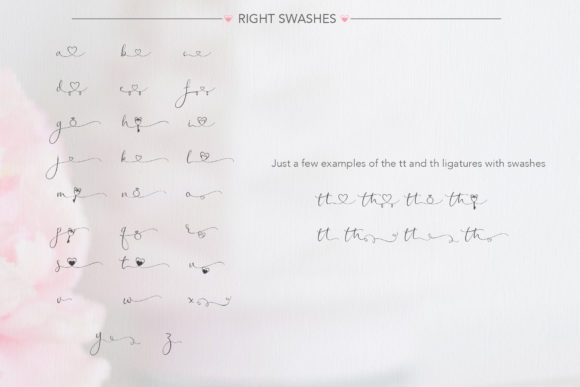 RIGHT SWASHES
a b c
d e f
g h i
j k l
Just a few examples of the tt and th ligatures with swashes
m n o
tt th tt th
p q r
tt th th th
s t u
v w x
y z